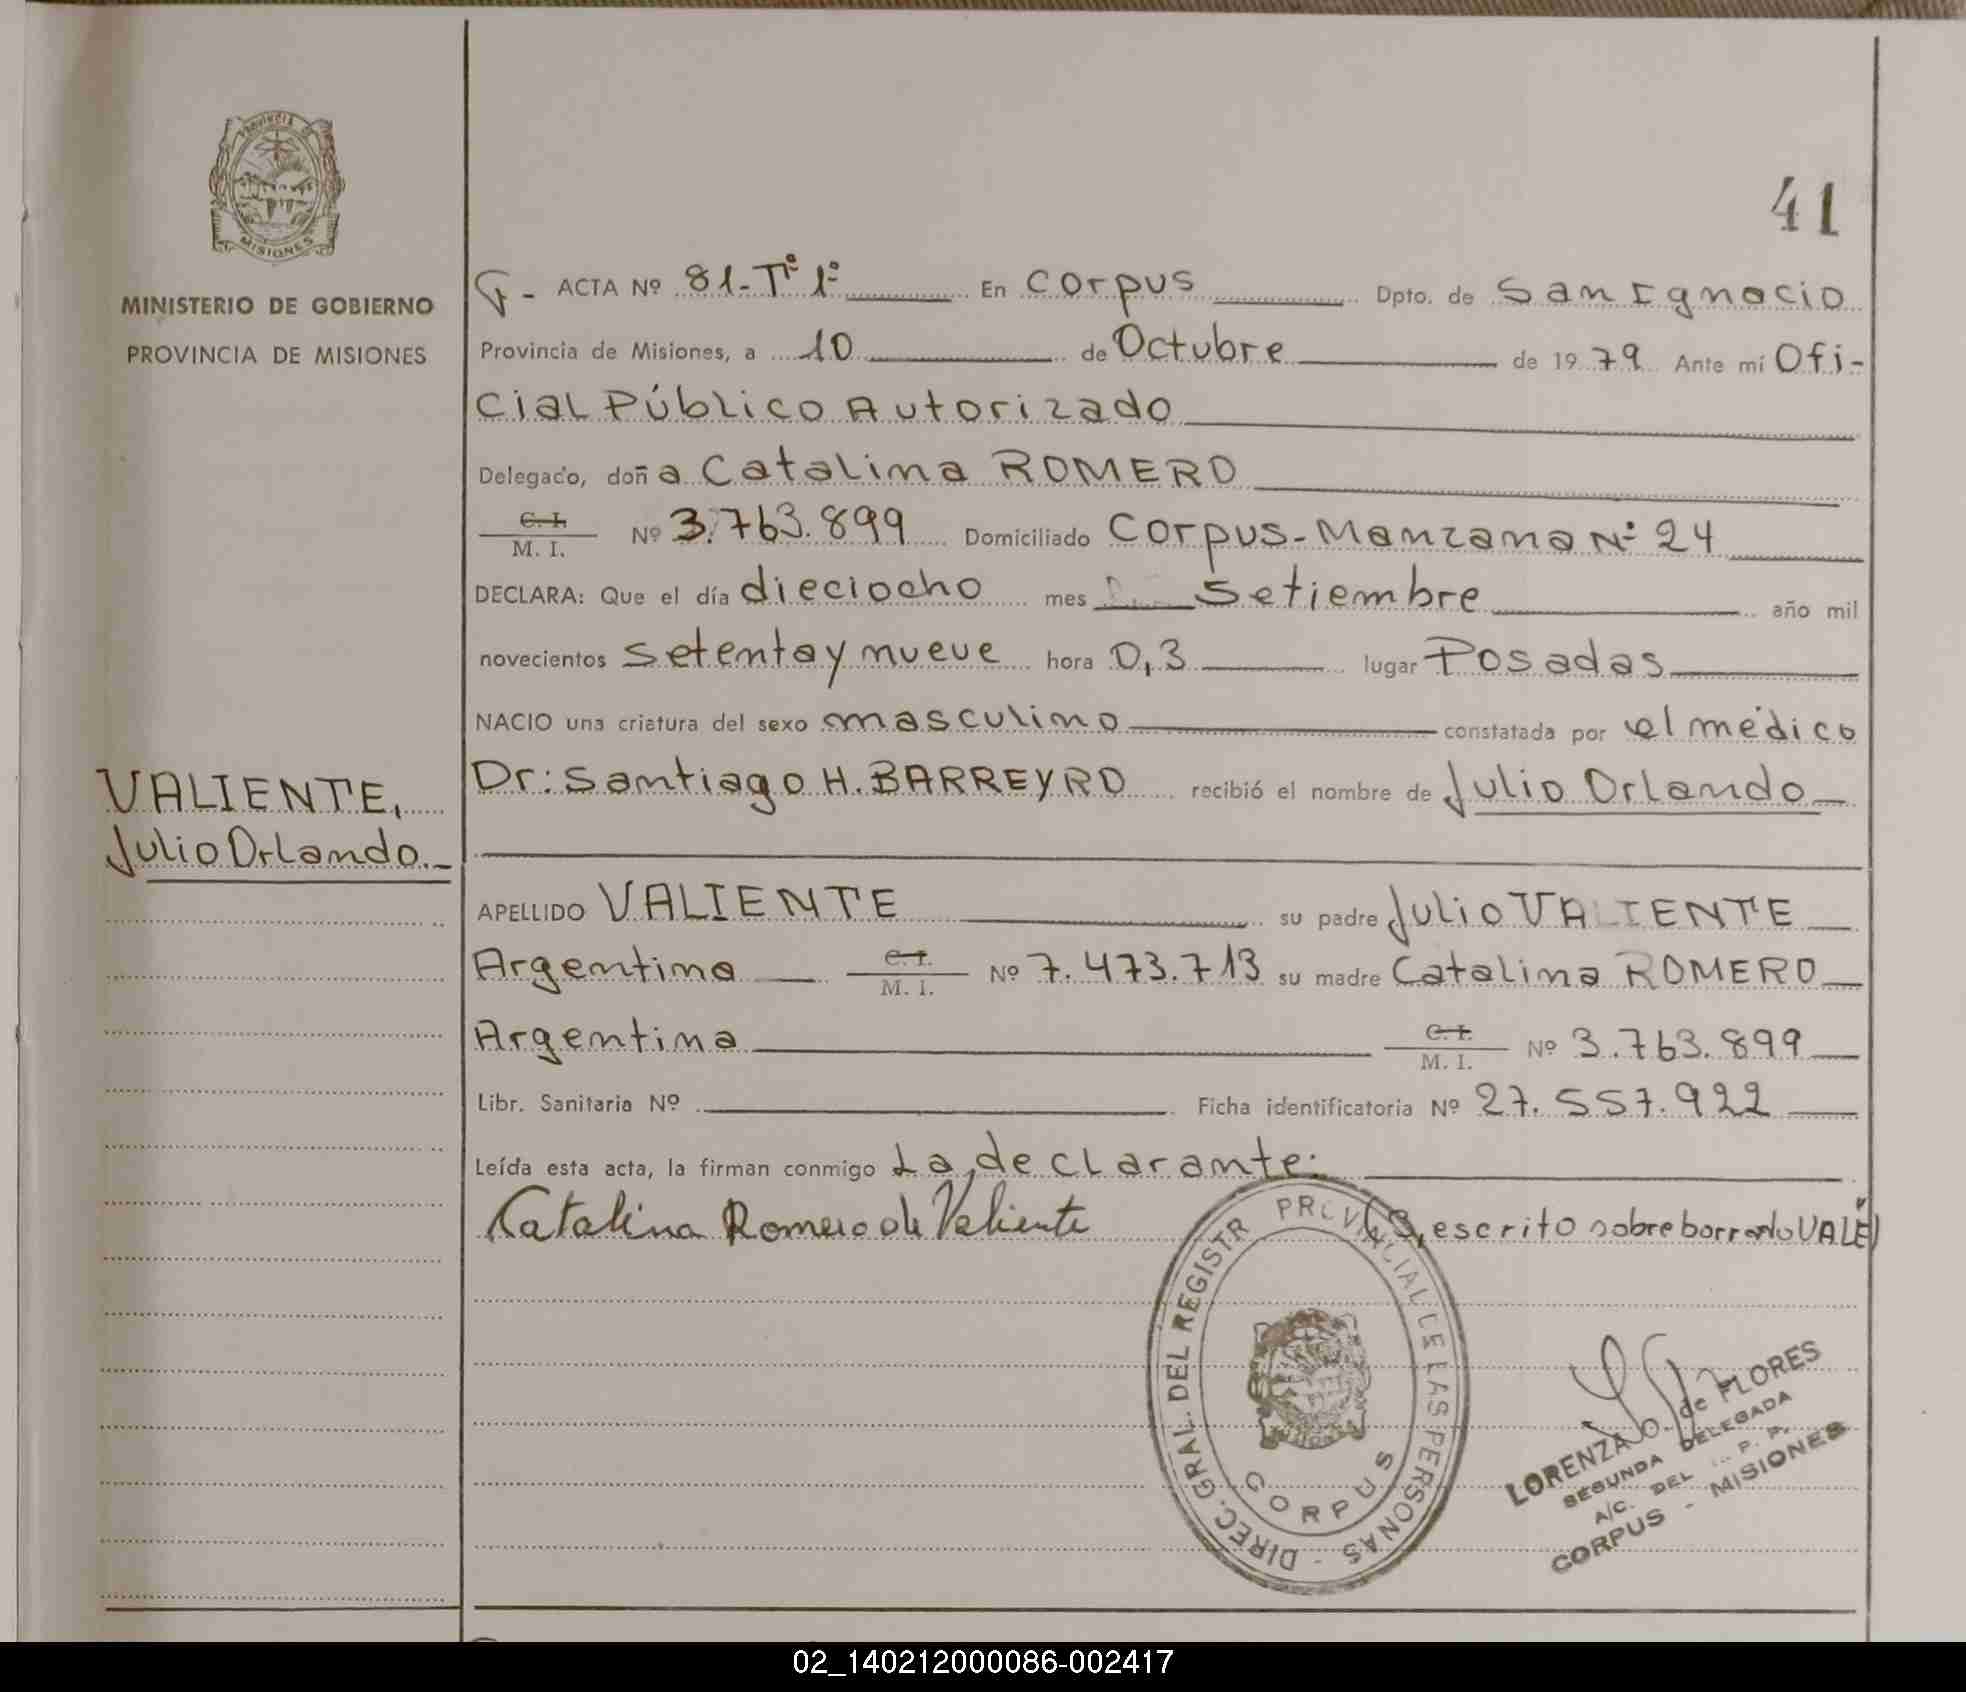 41
MINISTERIO DE GOBIERNO
PROVINCIA DE MISIONES
MISIONES
ACTA Nº 81-Tº 1º En Corpus Dpto. de San Ignacio
Provincia de Misiones, a 10 de Octubre de 1979 Ante mí Ofi-
cial Público Autorizado
Delegado, doña Catalina ROMERO
C. I. M. I. Nº 3.763.899 Domiciliado Corpus-Manzana Nº 24
DECLARA: Que el día dieciocho mes Setiembre año mil
novecientos setenta y nueve hora 0,3 lugar Posadas
NACIO una criatura del sexo masculino constatada por el médico
Dr: Santiago H. BARREYRO recibió el nombre de Julio Orlando
VALIENTE,
Julio Orlando.
APELLIDO VALIENTE su padre Julio VALIENTE
Argentino C. I. M. I. Nº 7.473.713 su madre Catalina ROMERO
Argentina C. I. M. I. Nº 3.763.899
Libr. Sanitaria Nº Ficha identificatoria Nº 27.557.922
Leída esta acta, la firman conmigo La declarante.
Catalina Romero de Valiente
escrito sobre borrado VALE)
DIREC. GRAL. DEL REGISTR PROVINCIAL DE LAS PERSONAS - CORPUS
LORENZA O. de FLORES
SEGUNDA DELEGADA
A/C. DEL P. P.
CORPUS - MISIONES
02_140212000086-002417